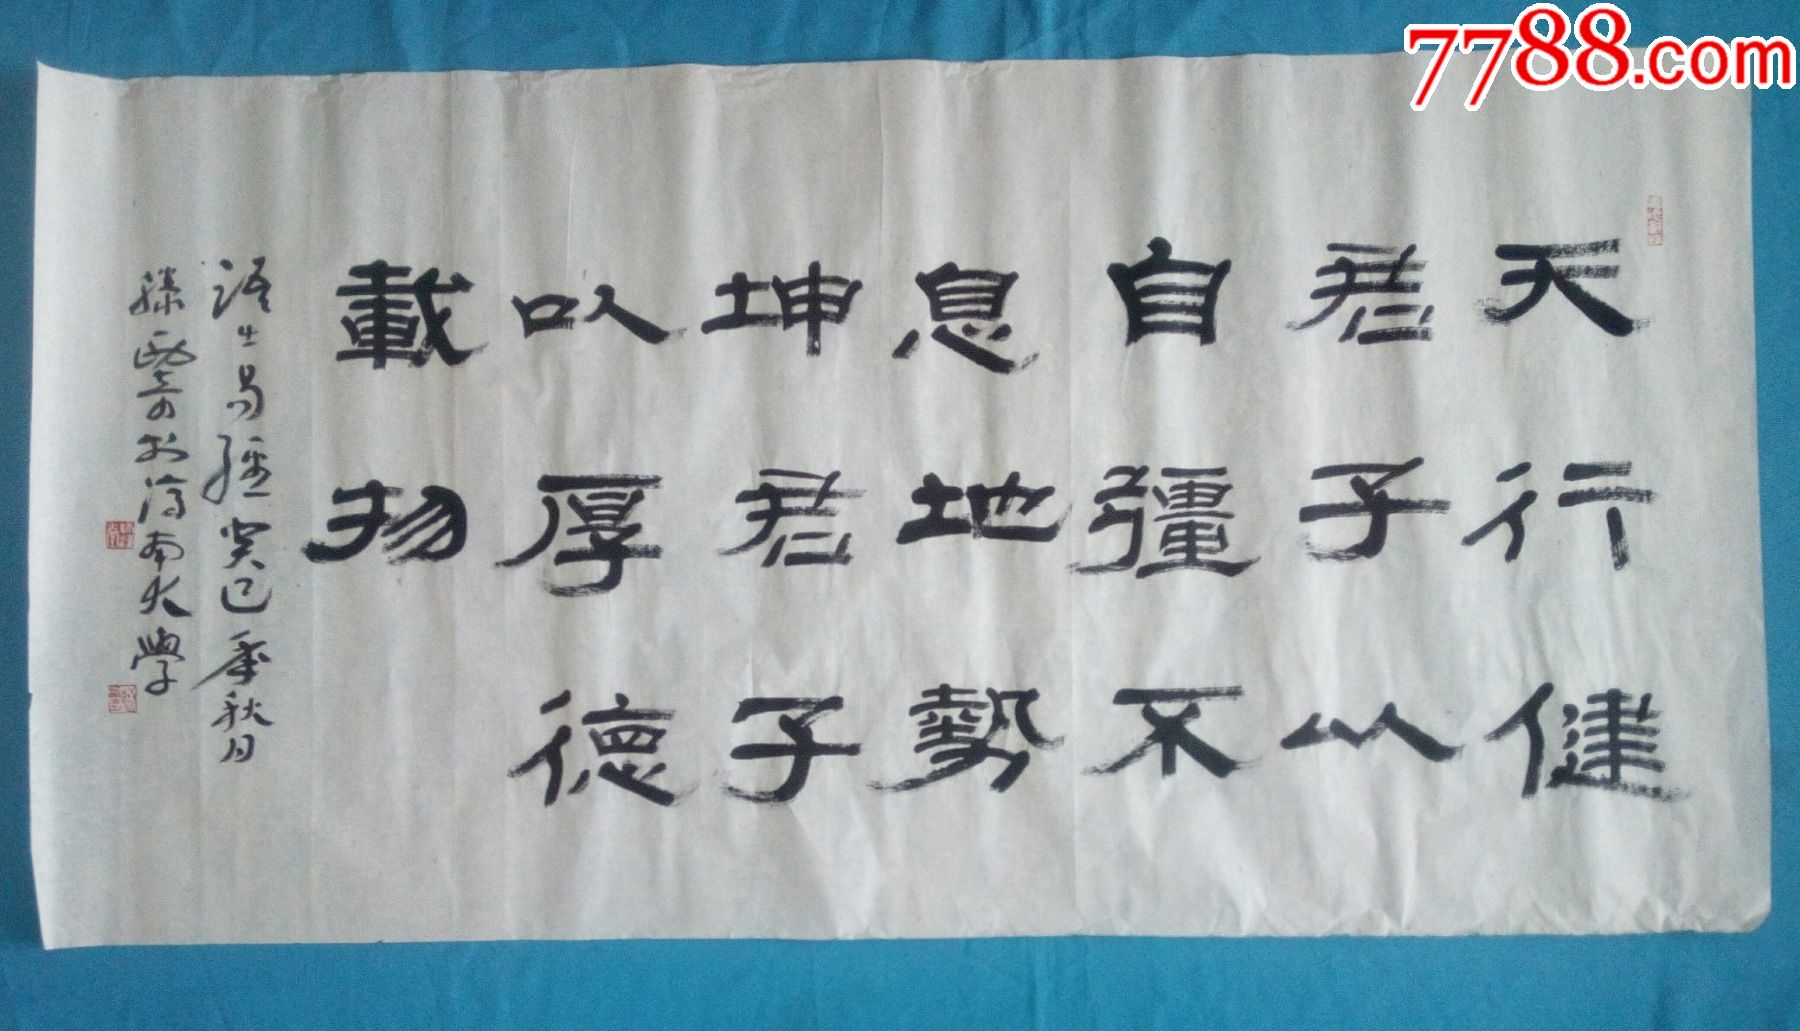 天行健
君子以
自彊不
息地勢
坤君子
以厚德
載物
語出易經癸巳年秋月
滕西奇於濟南大學
7788.com